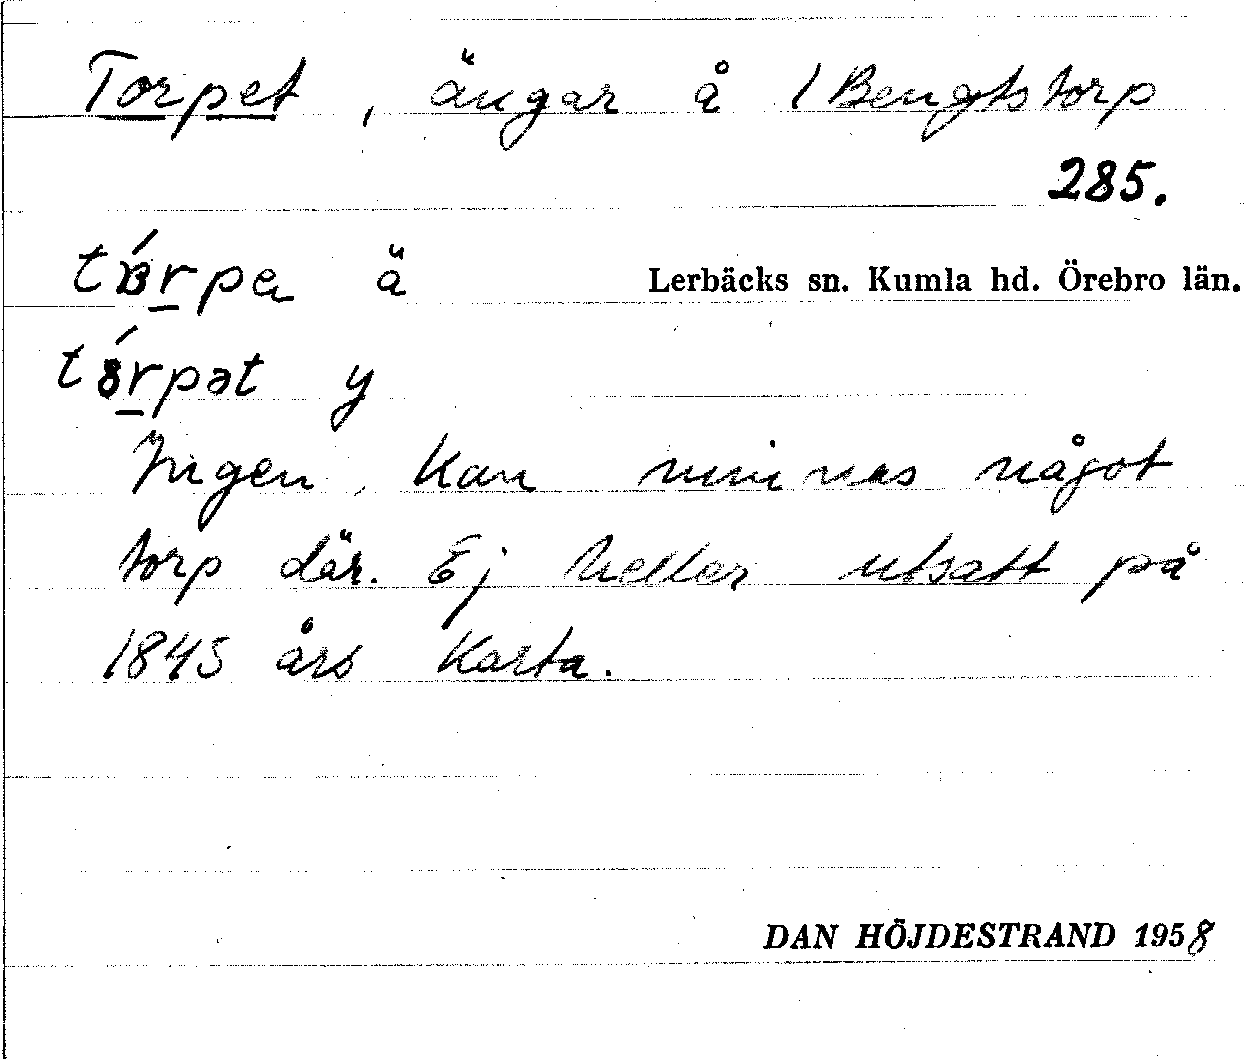 Torpet, ängar å 1 Bengtstorp
285.
Lerbäcks sn. Kumla hd. Örebro län.
ä
tórpət y
Ingen kan minnas något
torp där. Ej heller utsatt på
1845 års karta.
DAN HÖJDESTRAND 1958